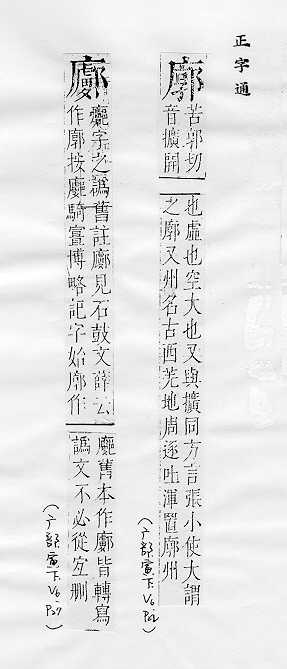 正字通
廓
苦郭切
音擴開
也虛也空大也又與擴同方言張小使大謂
之廓又州名古西羌地周逐吐渾置廓州
(广部寅下V6 P22)
字之譌舊註廫見石鼓文薛云
作廓按騎蹇博略記字始廓作
舊本作廫皆轉寫
譌文不必從宜刪
(广部寅下V6 P27)